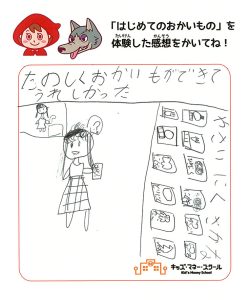 「はじめてのおかいもの」を
体験した感想をかいてね！
たいけん
かんそう
たのしくおかいものができて
うれしかった
やさいにくさかな
キッズ・マネー・スクール
Kid's Money School